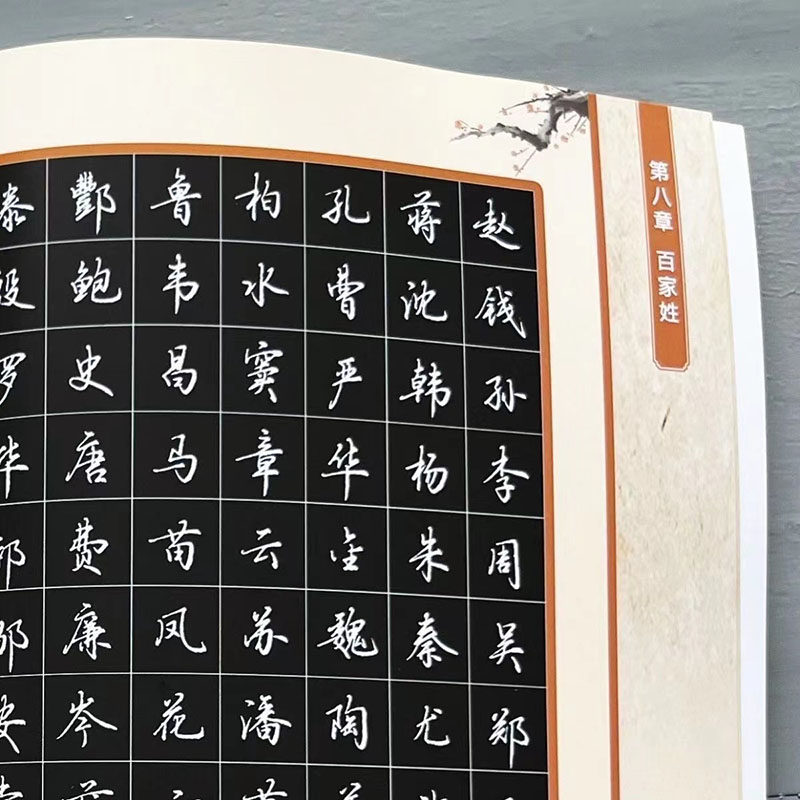 第八章 百家姓
赵钱孙李周吴郑
蒋沈韩杨朱秦尤
孔曹严华金魏陶
柏水窦章云苏潘
鲁韦昌马苗凤花
酆鲍史唐费廉岑
罗安